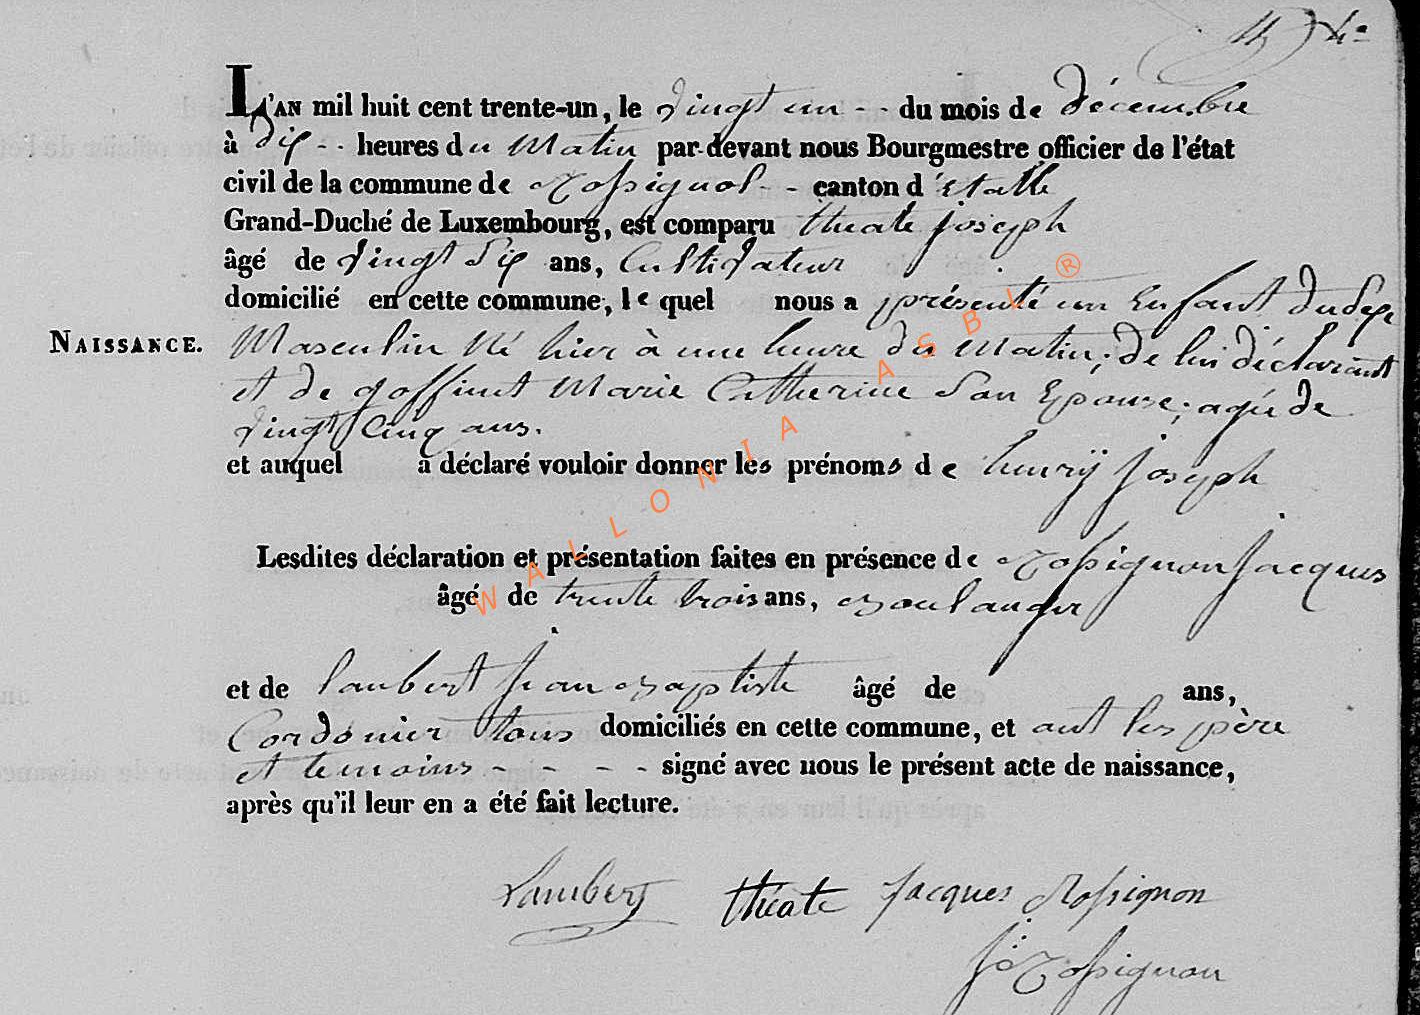 L'AN mil huit cent trente-un, le vingt un -- du mois de décembre
à dix -- heures du Matin par-devant nous Bourgmestre officier de l'état
civil de la commune de Rossignol -- canton d'Etalle
Grand-Duché de Luxembourg, est comparu théate joseph
âgé de vingt Six ans, Cultivateur
domicilié en cette commune, le quel nous a présenté un Enfant du Sexe
NAISSANCE. Masculin Né hier à une heure du Matin; de lui déclarant
et de goffinet Marie Catherine Son Epouse; agée de
vingt Cinq ans.
et auquel a déclaré vouloir donner les prénoms de henrÿ joseph
Lesdites déclaration et présentation faites en présence de Rossignon Jacques
âgé de trente trois ans, Boulanger
et de Lambert jean Baptiste âgé de ans,
Cordonier tous domiciliés en cette commune, et ont les père
et temoins - - - - signé avec nous le présent acte de naissance,
après qu'il leur en a été fait lecture.
Lambert théate Jacques Rossignon
Rossignon
WALLONIA ASBL ®